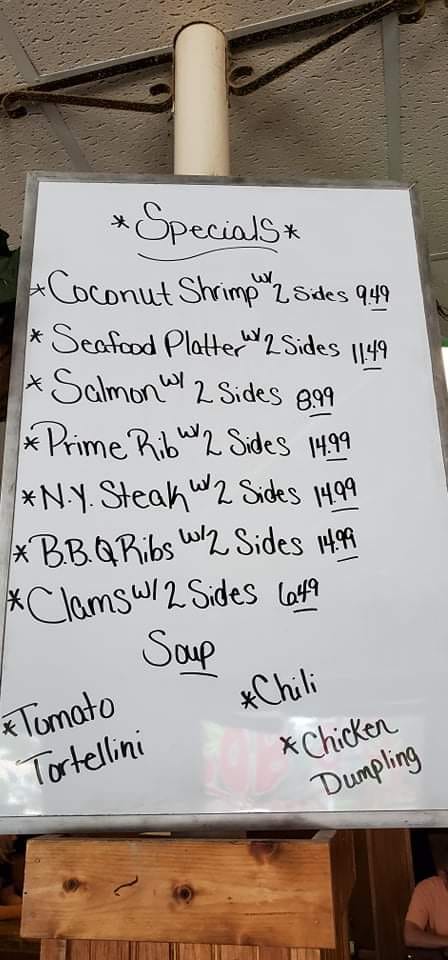 *Specials*
*Coconut Shrimp w/ 2 Sides 9.49
*Seafood Platter w/ 2 Sides 11.49
*Salmon w/ 2 Sides 8.99
*Prime Rib w/ 2 Sides 14.99
*N.Y. Steak w/ 2 Sides 14.99
*B.B.Q Ribs w/ 2 Sides 14.99
*Clams w/ 2 Sides 6.49
Soup
*Tomato
Tortellini
*Chili
*Chicken
Dumpling